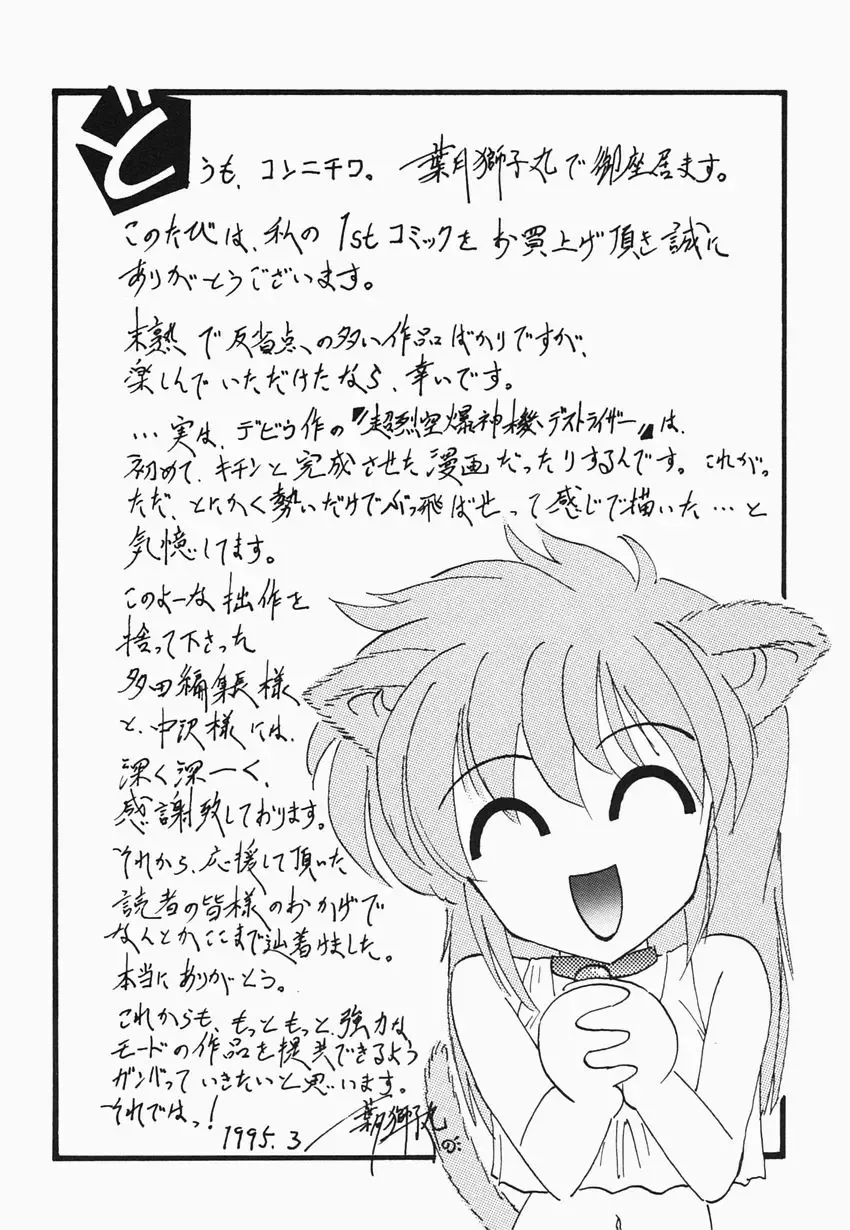 どうも、コンニチワ。 葉月獅子丸で御座居ます。
このたびは、私の1stコミックをお買上げ頂き誠に
ありがとうございます。
未熟で反省点の多い作品ばかりですが、
楽しんでいただけたなら、幸いです。
…実は、デビウ作の〝超烈空爆神機デストライザー〟は、
初めて、キチンと完成させた漫画だったりするんです。これがっ
ただ、とにかく勢いだけでぶっ飛ばせって感じで描いた…と
気憶してます。
このよーな拙作を
捨って下さった
多田編集長様
と、中沢様には、
深く深ーく、
感謝致しております。
それから、応援して頂いた
読者の皆様のおかげで
なんとかここまで辿着けました。
本当にありがとう。
これからも、もっともっと、強力な
モードの作品を提供できるよう
ガンバっていきたいと思います。
それではっ!
1995.3 葉月獅子丸